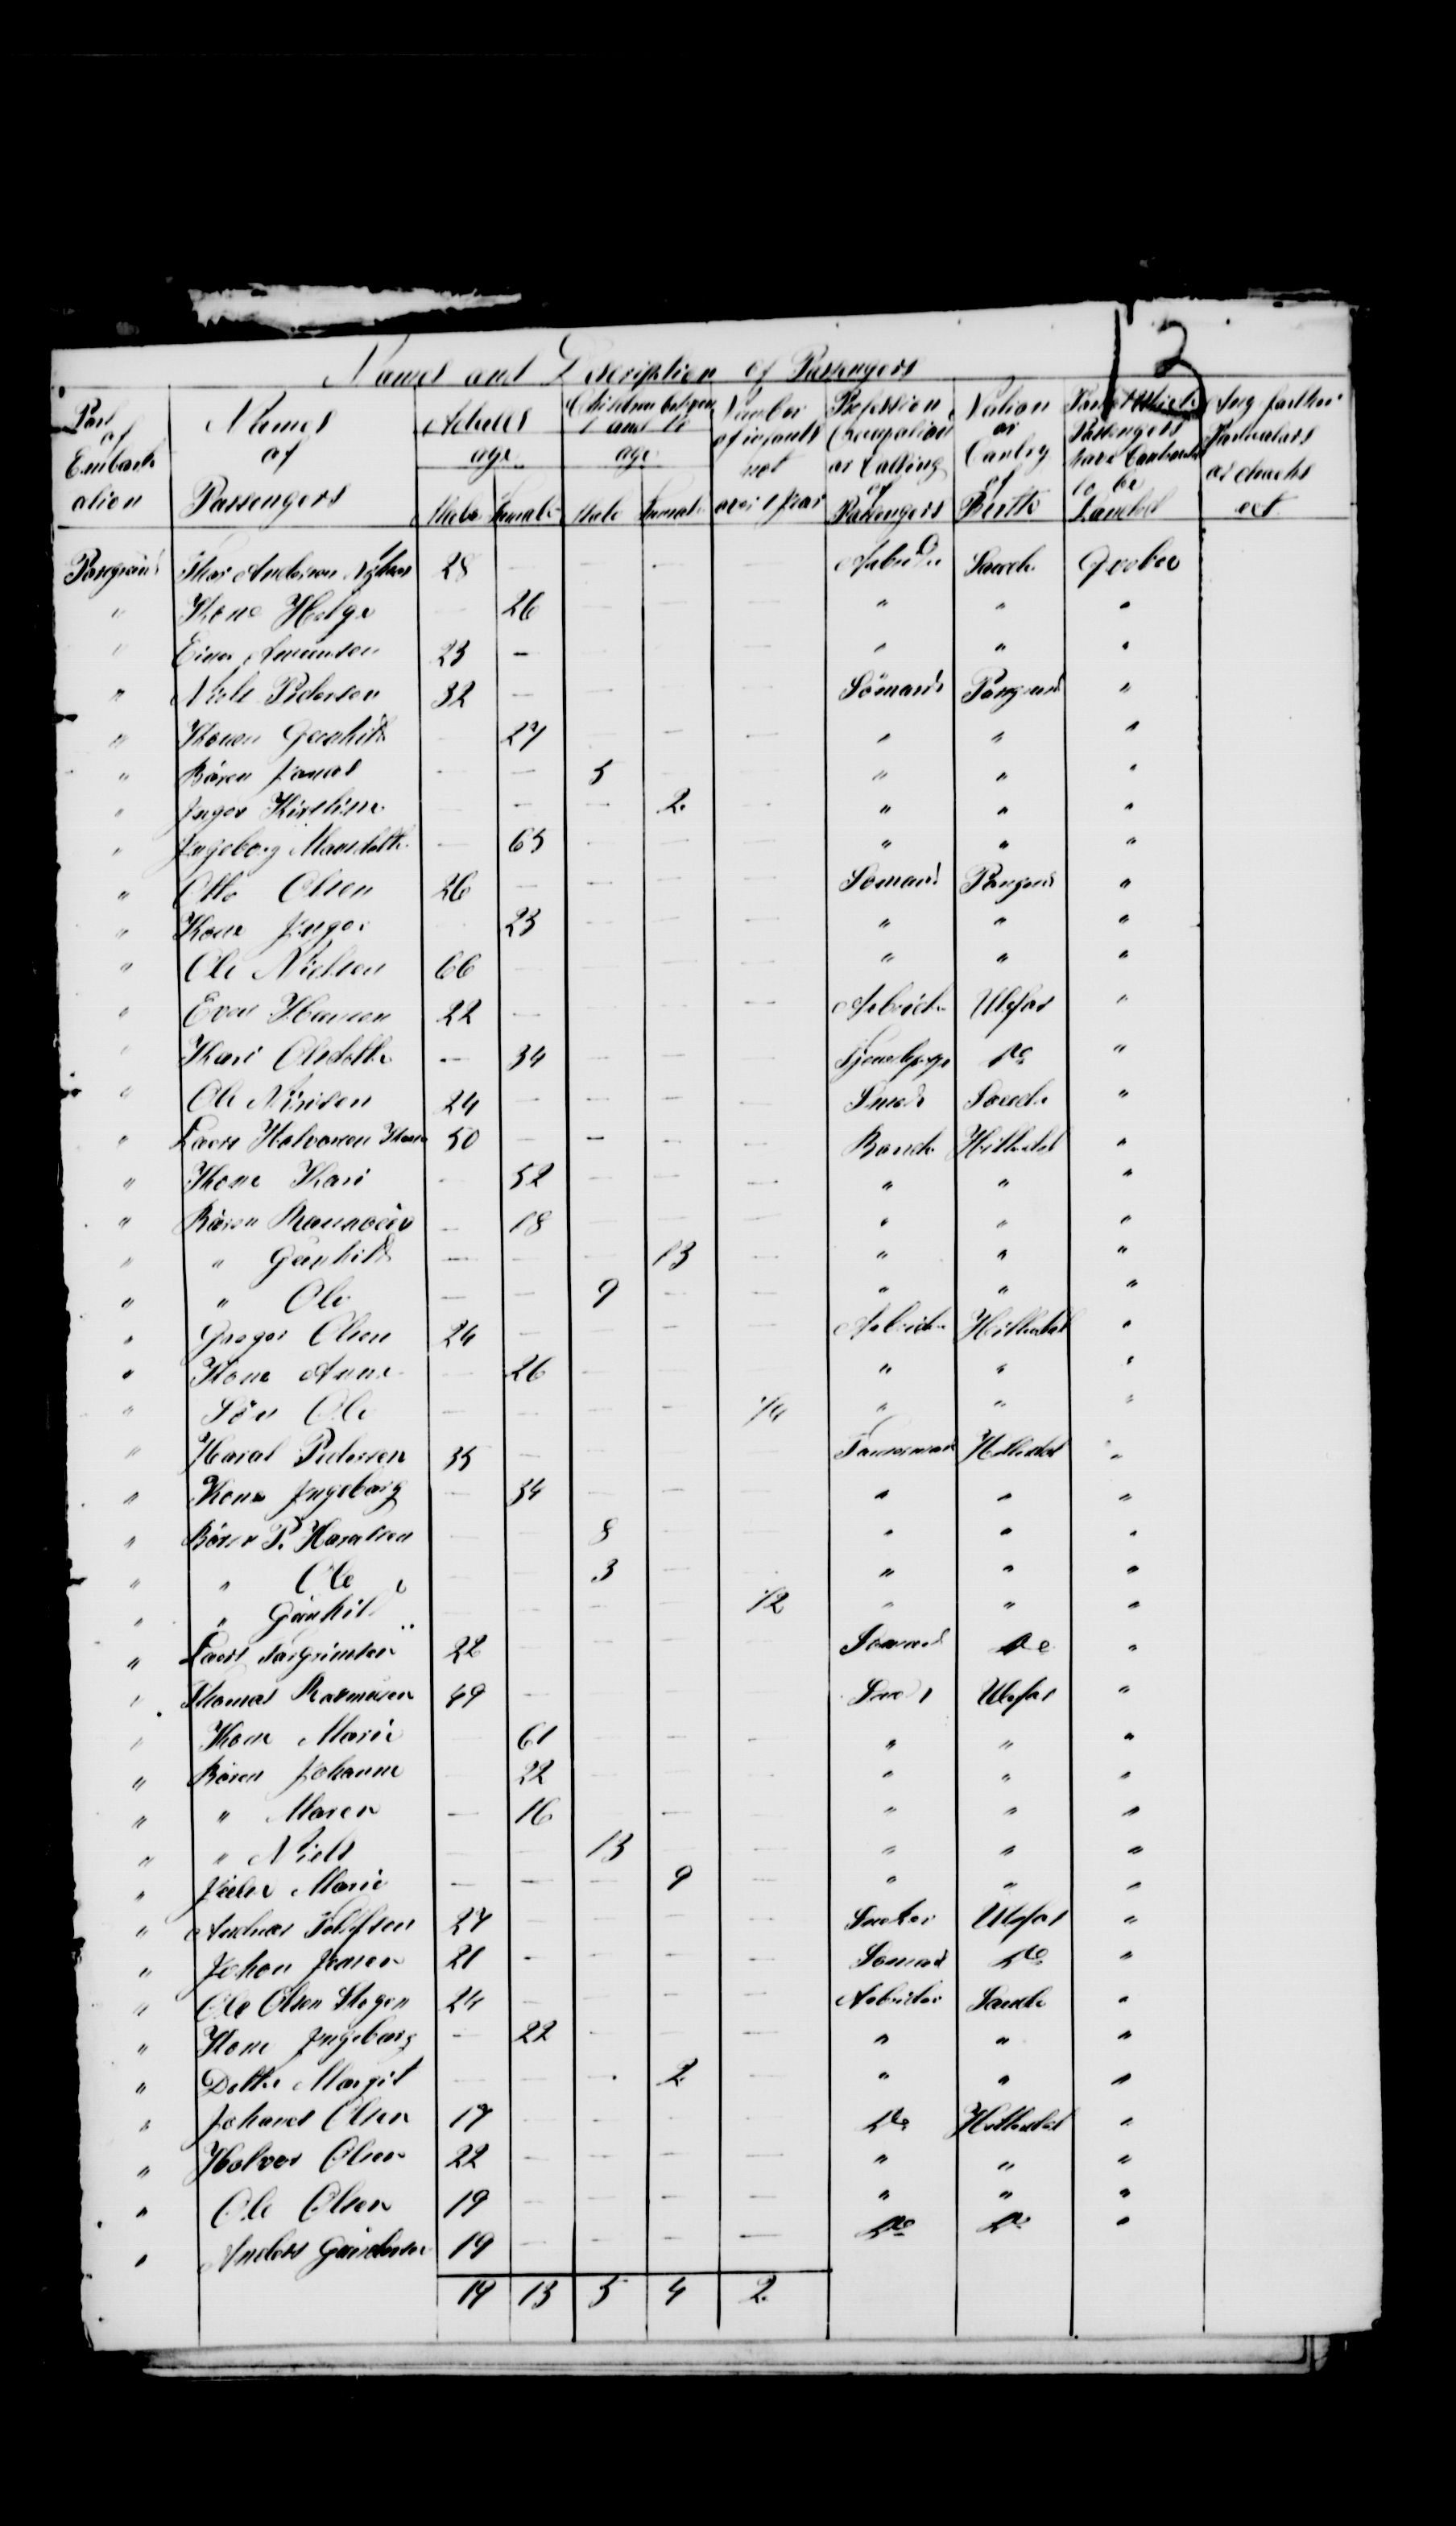 13
Names and Description of Passengers
Port of Embarkation | Names of Passengers | Adults age Male Female | Children between 1 and 14 age Male Female | Number of infants not over 1 year | Profession Occupation or Calling of Passengers | Nation or Contry of Birth | Passengers have Contracted to be Landed | Any further
Porsgrund Thor Anderson 28 — — — — Arbeider Saude Qvebec
" Kone Helge — 26 — — — " " "
" Einar Amundsen 23 — — — — " " "
" Niels Pedersen 32 — — — — Sömand Porsgrund "
" Konen Gunhild — 27 — — — " " "
" Bören Jonas — — 5 — — " " "
" Inger Kirstine — — — 2 — " " "
" Ingeborg — 65 — — — " " "
" Otto Olsen 26 — — — — Sömand Porsgrund "
" Kone Inger — 23 — — — " " "
" Ole Nielsen 66 — — — — " " "
" Even Hansen 22 — — — — Arbeider Ulefos "
" Kari Olsdotter — 34 — — — do "
" Ole 24 — — — — Smed Saude "
" Lars Halvorsen 50 — — — — Bonde Hitterdal "
" Kone Kari — 52 — — — " " "
" Bören — 18 — — — " " "
" " Gunhild — — — 13 — " " "
" " Ole — — 9 — — " " "
" Gregor Olsen 24 — — — — Arbeider Hitterdal "
" Kone Anne — 26 — — — " " "
" Sön Ole — — — — 1/4 " " "
" Haral Pedersen 35 — — — — Hitterdal "
" Kone Ingeborg — 34 — — — " " "
" Bören P. Haralsen — — 8 — — " " "
" " Ole — — 3 — — " " "
" " Gunhild — — — — 1/2 " " "
" Lars Torgrimsen 22 — — — — Sömand do "
" Thomas Rasmusen 49 — — — — Ulefos "
" Kone Marie — 61 — — — " " "
" Bören Johanne — 22 — — — " " "
" " Maren — 16 — — — " " "
" " Niels — — 13 — — " " "
" Marie — — — 9 — " " "
" Andreas 27 — — — — Ulefos "
" Johan Jensen 21 — — — — Sömand do "
" Ole Olsen 24 — — — — Arbeider Saude "
" Kone Ingeborg — 22 — — — " " "
" Datter Margit — — — 2 — " " "
" Johanes Olsen 17 — — — — do Hitterdal "
" Halvor Olsen 22 — — — — " " "
" Ole Olsen 19 — — — — " " "
" Anders Gundersen 19 — — — — do do "
19 13 5 4 2